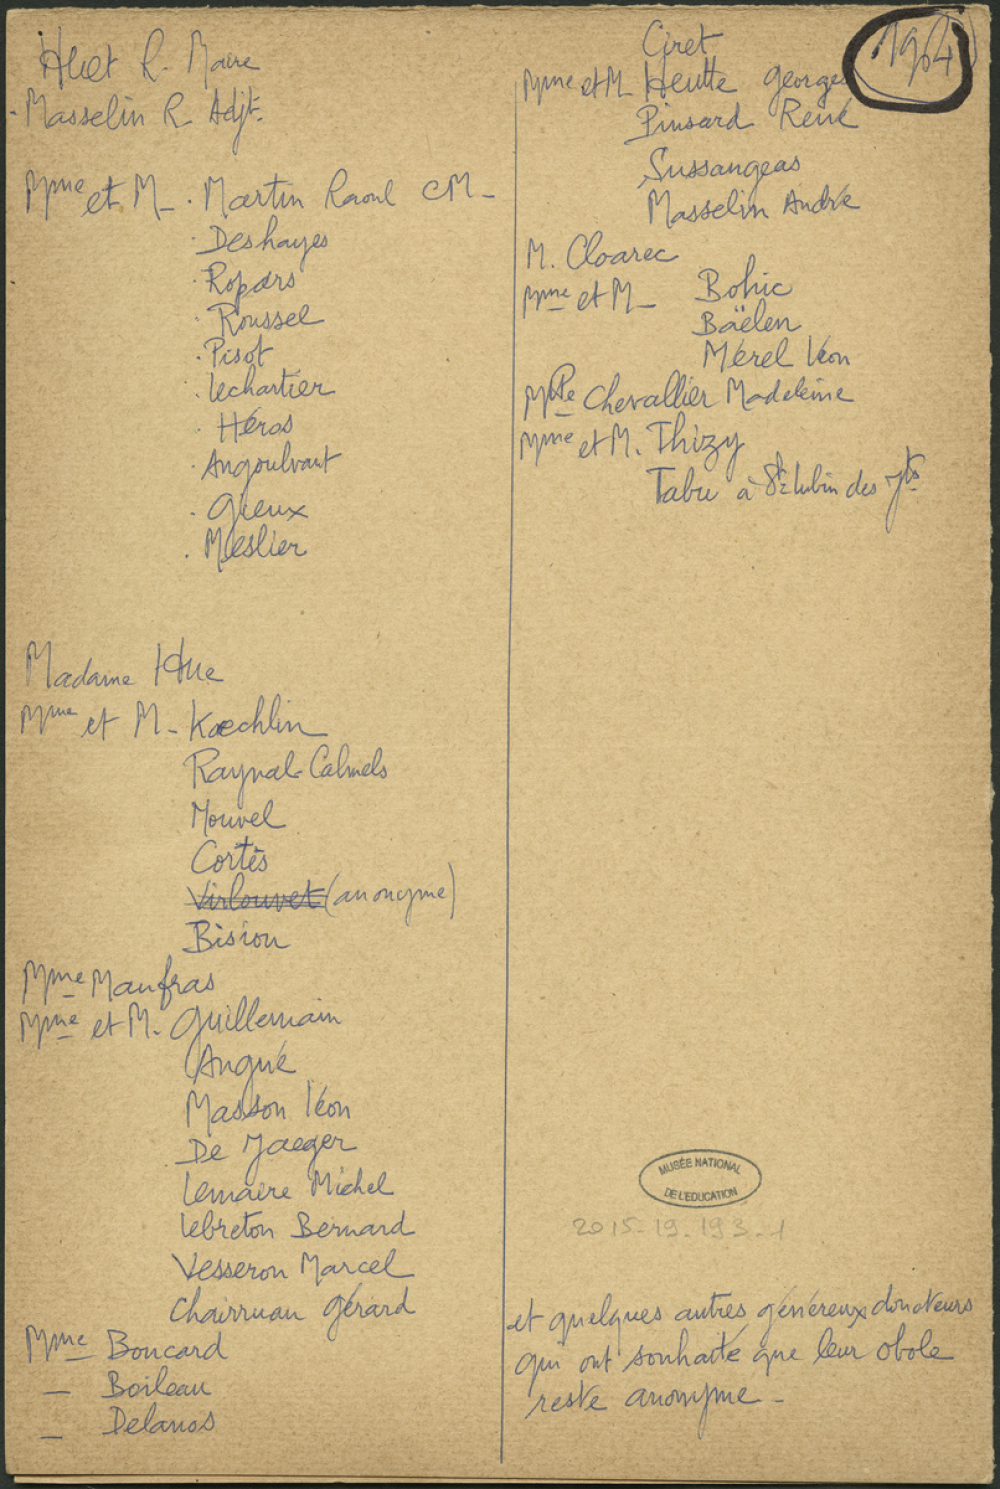 Huet R. Maire
- Masselin R. Adjt.
Mme et M_ . Martin Raoul CM_
. Deshayes
. Ropars
. Roussel
. Pisot
. Lechartier
. Héros
. Angoulvant
. Gieux
. Meslier
Madame Hue
Mme et M_ Kœchlin
Raynal-Calmels
Mouvel
Cortès
Virlouvet (anonyme)
Bision
Mme Maufras
Mme et M. Guillemain
Angué
Masson Léon
De Jaeger
Lemaire Michel
Lebreton Bernard
Vesseron Marcel
Chairman Gérard
Mme Boucard
_ Boileau
_ Delanos
Ciret
Mme et M_ Heutte Georges
Pinsard René
Sussangeas
Masselin André
M. Cloarec
Mme et M_ Bohic
Baëlen
Mérel Léon
Mlle Chevallier Madeleine
Mme et M. Thizy
Tabu à St Lubin des Jts
1964
MUSÉE NATIONAL
DE L'EDUCATION
2015.19.193.1
et quelques autres généreux donateurs
qui ont souhaité que leur obole
reste anonyme_